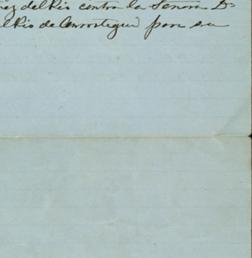 del Rio contra la Señora Da
del Rio de Amostegui por su